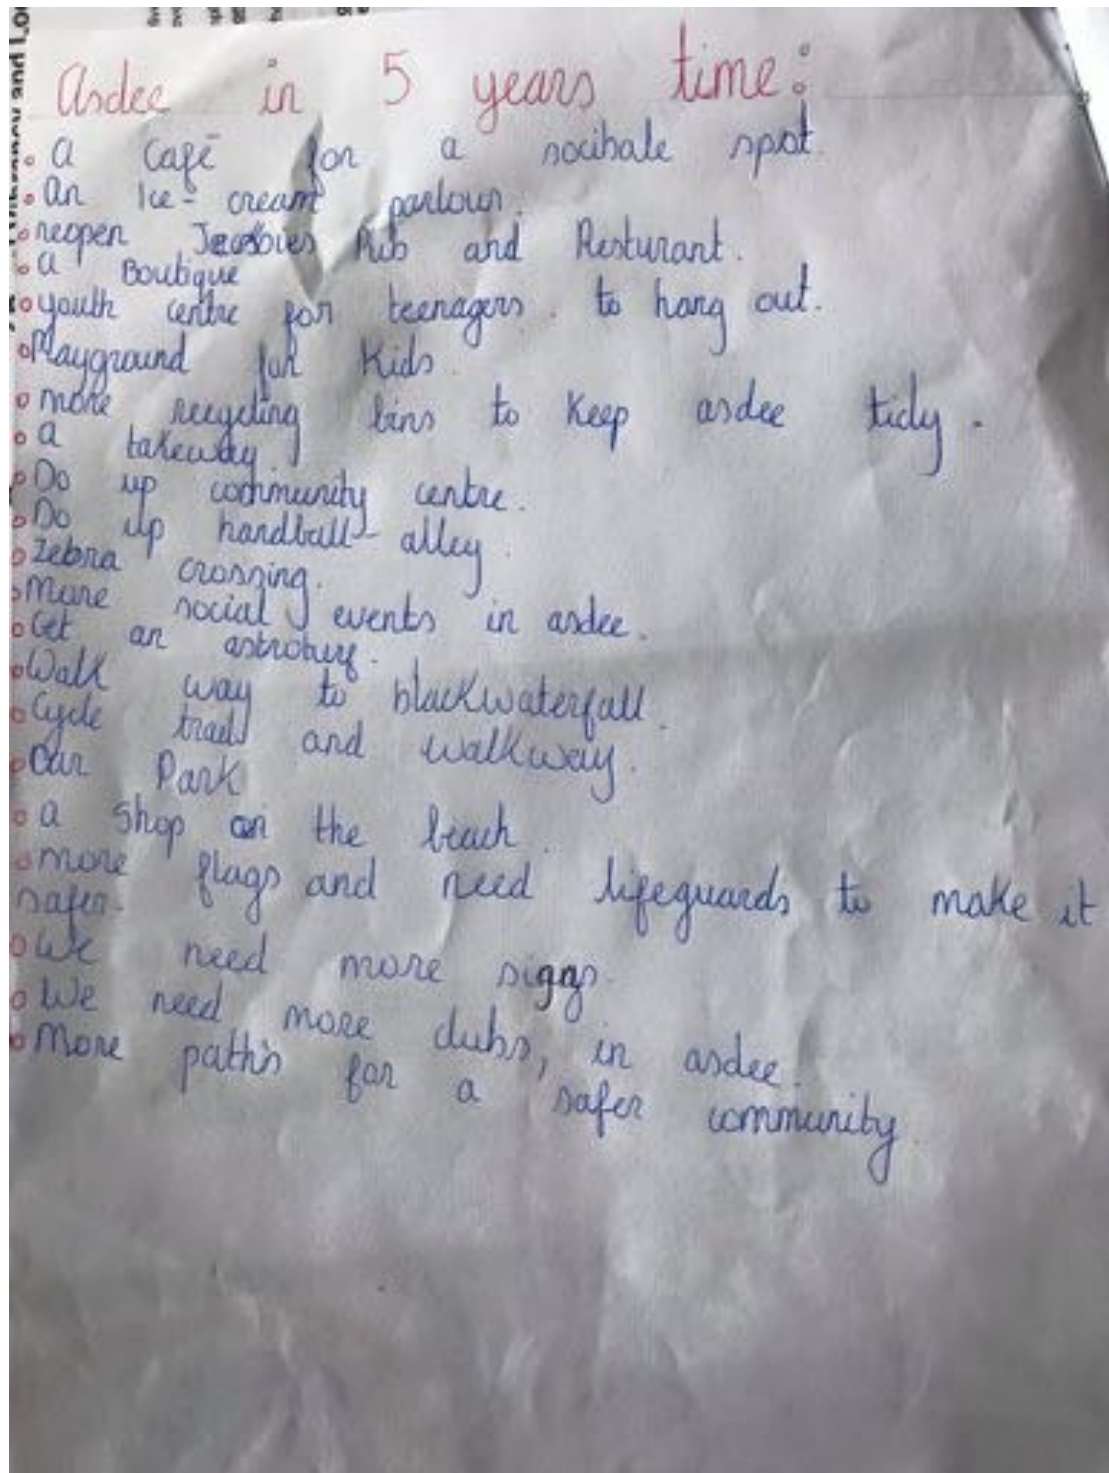 Asdee in 5 years time:
a Café for a socibale spot.
an Ice-cream parlour.
reopen Pub and Resturant.
a Boutique
youth centre for teenagers. to hang out.
Playground for Kids.
more recycling bins to keep asdee tidy.
a takeway.
Do up community centre.
Do up handball alley.
Zebra crossing.
More social events in asdee.
Get an astroturf.
Walk way to blackwaterfall.
Cycle trail and walkway.
Car Park
a shop on the beach.
more flags and need lifeguards to make it
safer.
We need more signs.
We need more clubs, in asdee.
More paths for a safer community.